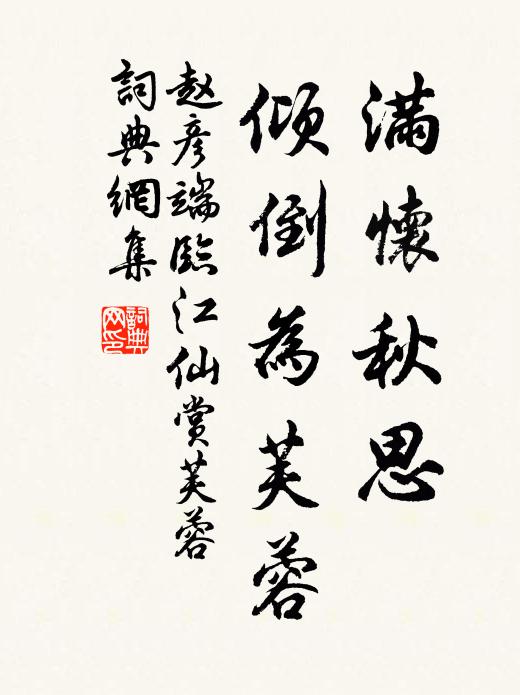 满懷秋思
倾倒為芙蓉
赵彦端臨江仙賞芙蓉
詞典網集
詞典网印